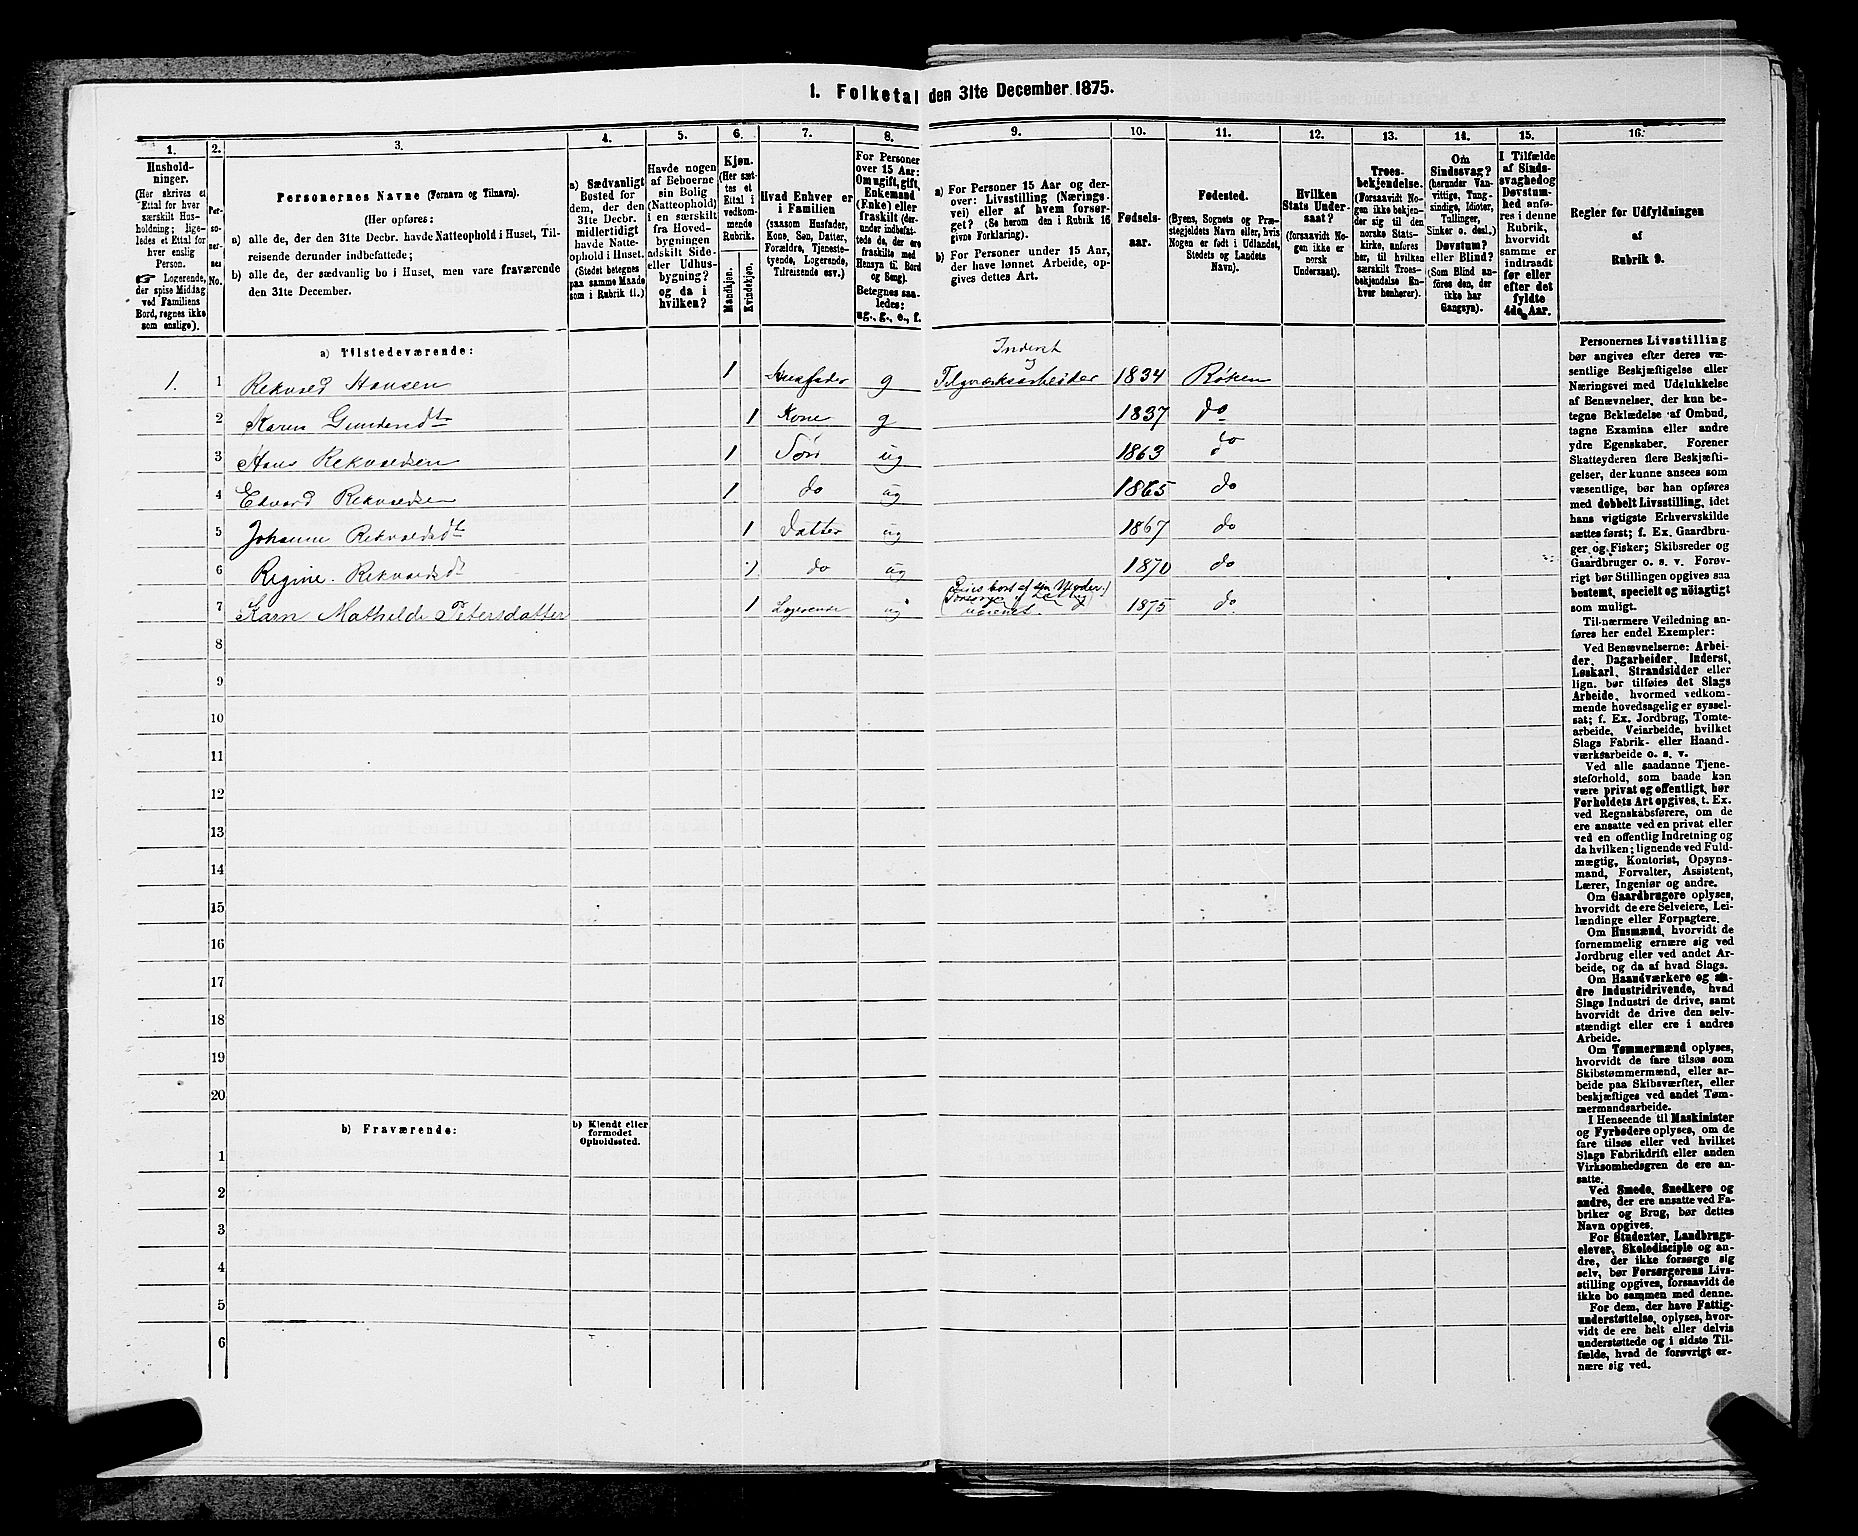 1. Folketal den 31te December 1875.
1.
2.
3.
4.
5.
6.
7.
8.
9.
10.
11.
12.
13.
14.
15.
16.
Hushold-
ninger.
(Her skrives et
Ettal for hver
særskilt Hus-
holdning; lige-
ledes et Ettal for
hver enslig
Person.
☞ Logerende,
der spise Middag
ved Familiens
Bord, regnes ikke
som enslige).
Per-
so-
ner-
nes
No.
Personernes Navne (Fornavn og Tilnavn).
(Her opføres:
a) alle de, der den 31te Decbr. havde Natteophold i Huset, Til-
reisende derunder indbefattede;
b) alle de, der sædvanlig bo i Huset, men vare fraværende
den 31te December.
a) Sædvanligt
Bosted for
dem, der den
31te Decbr.
midlertidigt
havde Natte-
ophold i Huset.
(Stedet betegnes
paa samme Maade
som i Rubrik 11.)
Havde nogen
af Beboerne
sin Bolig
(Natteophold)
i en særskilt
fra Hoved-
bygningen
adskilt Side-
eller Udhus-
bygning?
og da i
hvilken?
Kjøn.
(Her sæt-
tes et
Ettal i
vedkom-
mende
Rubrik.
Mandkjøn.
Kvindekjøn.
Hvad Enhver er
i Familien
(saasom Husfader,
Kone, Søn, Datter,
Forældre, Tjeneste-
tyende, Logerende,
Tilreisende osv.)
For Personer
over 15 Aar:
Om ugift, gift,
Enkemand
(Enke) eller
fraskilt (der-
under indbefat-
tede de, der ere
fraskilte med
Hensyn til Bord
og Seng).
Betegnes saa-
ledes:
ug., g., e., f.
a) For Personer 15 Aar og der-
over: Livsstilling (Nærings-
vei) eller af hvem forsør-
get? (Se herom den i Rubrik 16
givne Forklaring).
b) For Personer under 15 Aar,
der have lønnet Arbeide, op-
gives dettes Art.
Fødsels-
aar.
Fødested.
(Byens, Sognets og Præ-
stegjeldets Navn eller, hvis
Nogen er født i Udlandet,
Stedets og Landets
Navn).
Hvilken
Stats Under-
saat?
(forsaavidt No-
gen ikke er
norsk
Undersaat).
Troes-
bekjendelse.
(Forsaavidt No-
gen ikke bekjen-
der sig til den
norske Stats-
kirke, anføres
her, til hvilken
særskilt Troes-
bekjendelse En-
hver henhører).
Om
Sindssvag?
(herunder Van-
vittige, Tung-
sindige, Idioter,
Tullinger,
Sinker o. desl.)
Døvstum?
eller Blind?
(Som Blind an-
føres den, der
ikke har
Gangsyn).
I Tilfælde
af Sinds-
svaghed og
Døvstum-
hed anfø-
res i denne
Rubrik,
hvorvidt
samme er
indtraadt
før eller
efter det
fyldte
4de Aar.
Regler for Udfyldningen
af
Rubrik 9.
a) Tilstedeværende:
1. 1 Rekvard Hansen 1 Husfader g Inderst og Teglværksarbeider 1834 Røken
2 Karen Gundersdt 1 Kone g 1837 do
3 Hans Rekvaldsen 1 Søn ug 1863 do
4 Edvard Rekvaldsen 1 do ug 1865 do
5 Johanne Rekvaldsdt 1 Datter ug 1867 do
6 Regine Rekvaldsdt 1 do ug 1870 do
7 Karn Mathilde Petersdatter 1 Logerende ug 1875 do
8
9
10
11
12
13
14
15
16
17
18
19
20
b) Fraværende:
b) Kjendt eller
formodet
Opholdssted.
1
2
3
4
5
6
Personernes Livsstilling
bør angives efter deres væ-
sentlige Beskjæftigelse eller
Næringsvei med Udelukkelse
af Benævnelser, der kun be-
tegne Beklædelse af Ombud,
tagne Examina eller andre
ydre Egenskaber. Forener
Skatteyderen flere Beskjæfti-
gelser, der kunne ansees som
væsentlige, bør han opføres
med dobbelt Livsstilling, idet
hans vigtigste Erhvervskilde
sættes først; f. Ex. Gaardbru-
ger og Fisker; Skibsreder og
Gaardbruger o. s. v. Forøv-
rigt bør Stillingen opgives saa
bestemt, specielt og nöiagtigt
som muligt.
Til nærmere Veiledning an-
føres her endel Exempler:
Ved Benævnelserne: Arbei-
der, Dagarbeider, Inderst,
Løskarl, Strandsidder eller
lign. bør tilføies det Slags
Arbeide, hvormed vedkom-
mende hovedsagelig er syssel-
sat; f. Ex. Jordbrug, Tomte-
arbeide, Veiarbeide, hvilket
Slags Fabrik- eller Haand-
værksarbeide o. s. v.
Ved alle saadanne Tjene-
steforhold, som baade kan
være privat og offentligt, bør
Forholdets Art opgives, t. Ex.
ved Regnskabsførere, om de
ere ansatte ved en privat eller
ved en offentlig Indretning og
da hvilken; lignende ved Fuld-
mægtig, Kontorist, Opsyns-
mand, Forvalter, Assistent,
Lærer, Ingeniør og andre.
Om Gaardbrugere oplyses,
hvorvidt de ere Selveiere, Lei-
lændinge eller Forpagtere.
Om Husmænd, hvorvidt de
fornemmelig ernære sig ved
Jordbrug eller ved andet Ar-
beide, og da af hvad Slags.
Om Haandværkere og an-
dre Industridrivende, hvad
Slags Industri de drive, samt
hvorvidt de drive den selv-
stændigt eller ere i andres
Arbeide.
Om Tømmermænd oplyses,
hvorvidt de fare tilsøs som
Skibstømmermænd, eller ar-
beide paa Skibsværfter, eller
beskjæftiges ved andet Tøm-
mermandsarbeide.
I Henseende til Maskinister
og Fyrbødere oplyses, om de
fare tilsøs eller ved hvilket
Slags Fabrikdrift eller anden
Virksomhedsgren de ere an-
satte.
Ved Smede, Snedkere og
andre, der ere ansatte ved Fa-
briker og Brug, bør dettes
Navn opgives.
For Studenter, Landbrugs-
elever, Skoledisciple og an-
dre, der ikke forsørge sig
selv, bør Forsørgerens Livs-
stilling opgives, forsaavidt de
ikke bo sammen med denne.
For dem, der have Fattig-
understøttelse, oplyses, hvor-
vidt de ere helt eller delvis
understøttede og i sidste Til-
fælde, hvad de forøvrigt er-
nære sig ved.